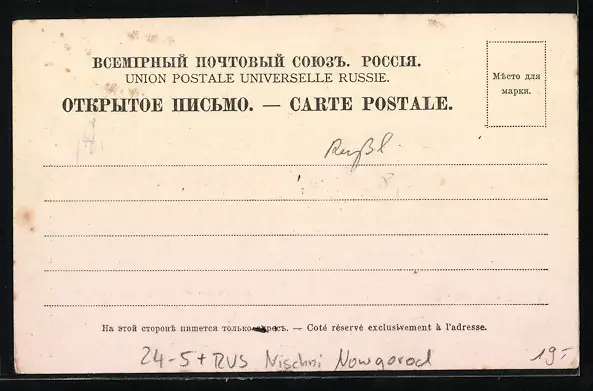 ВСЕМІРНЫЙ ПОЧТОВЫЙ СОЮЗЪ. РОССІЯ.
UNION POSTALE UNIVERSELLE RUSSIE.
ОТКРЫТОЕ ПИСЬМО. — CARTE POSTALE.
Мѣсто для
марки.
Rußl.
На этой сторонѣ пишется только адресъ. — Coté réservé exclusivement à l'adresse.
24-5+ RUS Nischni Nowgorod
19,-